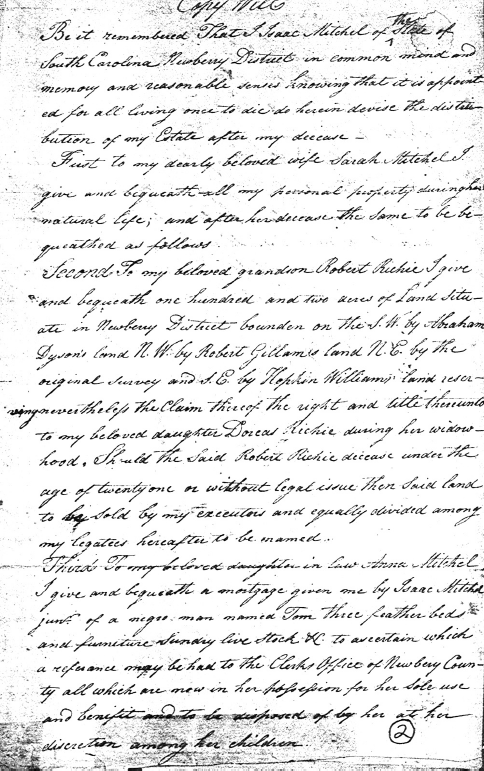 Copy Will
Be it remembered That I Isaac Mitchel of the State of
South Carolina Newberry District in common mind and
memory and reasonable senses knowing that it is appoint
ed for all living once to die do herein devise the distri-
bution of my Estate after my decease -
First to my dearly beloved wife Sarah Mitchel I
give and bequeath all my personal property during her
natural life; and after her decease the same to be be-
queathed as follows
Second To my beloved grandson Robert Richie I give
and bequeath one hundred and two acres of Land Situ-
ate in Newberry District bounden on the S.W. by Abraham
Dyson's land N.W. by Robert Gillam's land N.E. by the
original Survey and S.E. by Hopkin Williams' land reser-
ving nevertheless the Claim thereof the right and title thereunto
to my beloved daughter Dorcas Richie during her widow-
hood, Should the Said Robert Richie decease under the
age of twenty one or without legal issue then Said land
to be Sold by my executors and equally divided among
my legatees hereafter to be named.
Third To my beloved daughter in law Anna Mitchel
I give and bequeath a mortgage given me by Isaac Mitchel
junr. of a negro man named Tom three feather beds
and furniture Sundry live Stock &c. to ascertain which
a referance may be had to the Clerks Office of Newbery Coun-
ty all which are now in her possession for her Sole use
and benefit and to be disposed of by her at her
discretion among her children.
2